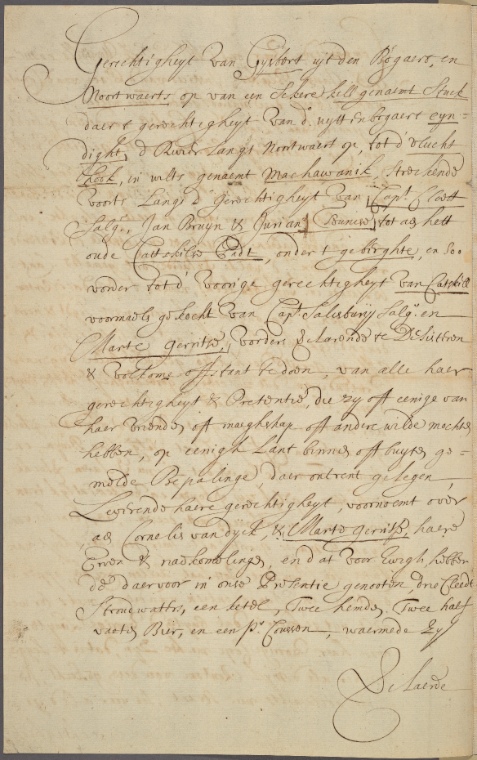 Gerechtigheyt van Gysbert uyt den Bogaert, en
Noortwaerts op van een sekere kill genaemt Stuck
daer t gerechtigheyt van d'. uytten bogaert eyn-
dight, d' Rivier Langs Noortwaert op, tot d' Vlucht
hoek, in wilts genaemt Machawanik, streckende
voorts Langs d' gerechtigheyt van Capt.
Salgr. Jan Bruyn & Jurian tot aen hett
oude Cattskills Padt, onder t gebirghte, en soo
vorder tot d' voorige gerechtigheyt van Catskill
voormaels gekocht van Capt. Salisburÿ Salgr. en
Marte Gerritse, vorders Verklarende te Desisteren
& volkome offstant te doen, van alle haer
gerechtigheyt & Pretentie, die zy off eenige van
haer vrienden off maeghschap off andere wilde mochte
hebben, op eenigh Lant binne off buyte ge-
melde Bepalinge, daer ontrent gelegen
Leverende haere gerechtigheyt, voornoemt over
aen Cornelis van dyck, & Marte Gerritse, haere
Erven & nadkomelinge, en dat voor Ewigh, hebbende
daer voor in onse Presentie genooten drie Cleede
Stroudwatters, een ketel, Twee hemde, Twee half
vatte Bier, en een pr. Coussen, waermede zy